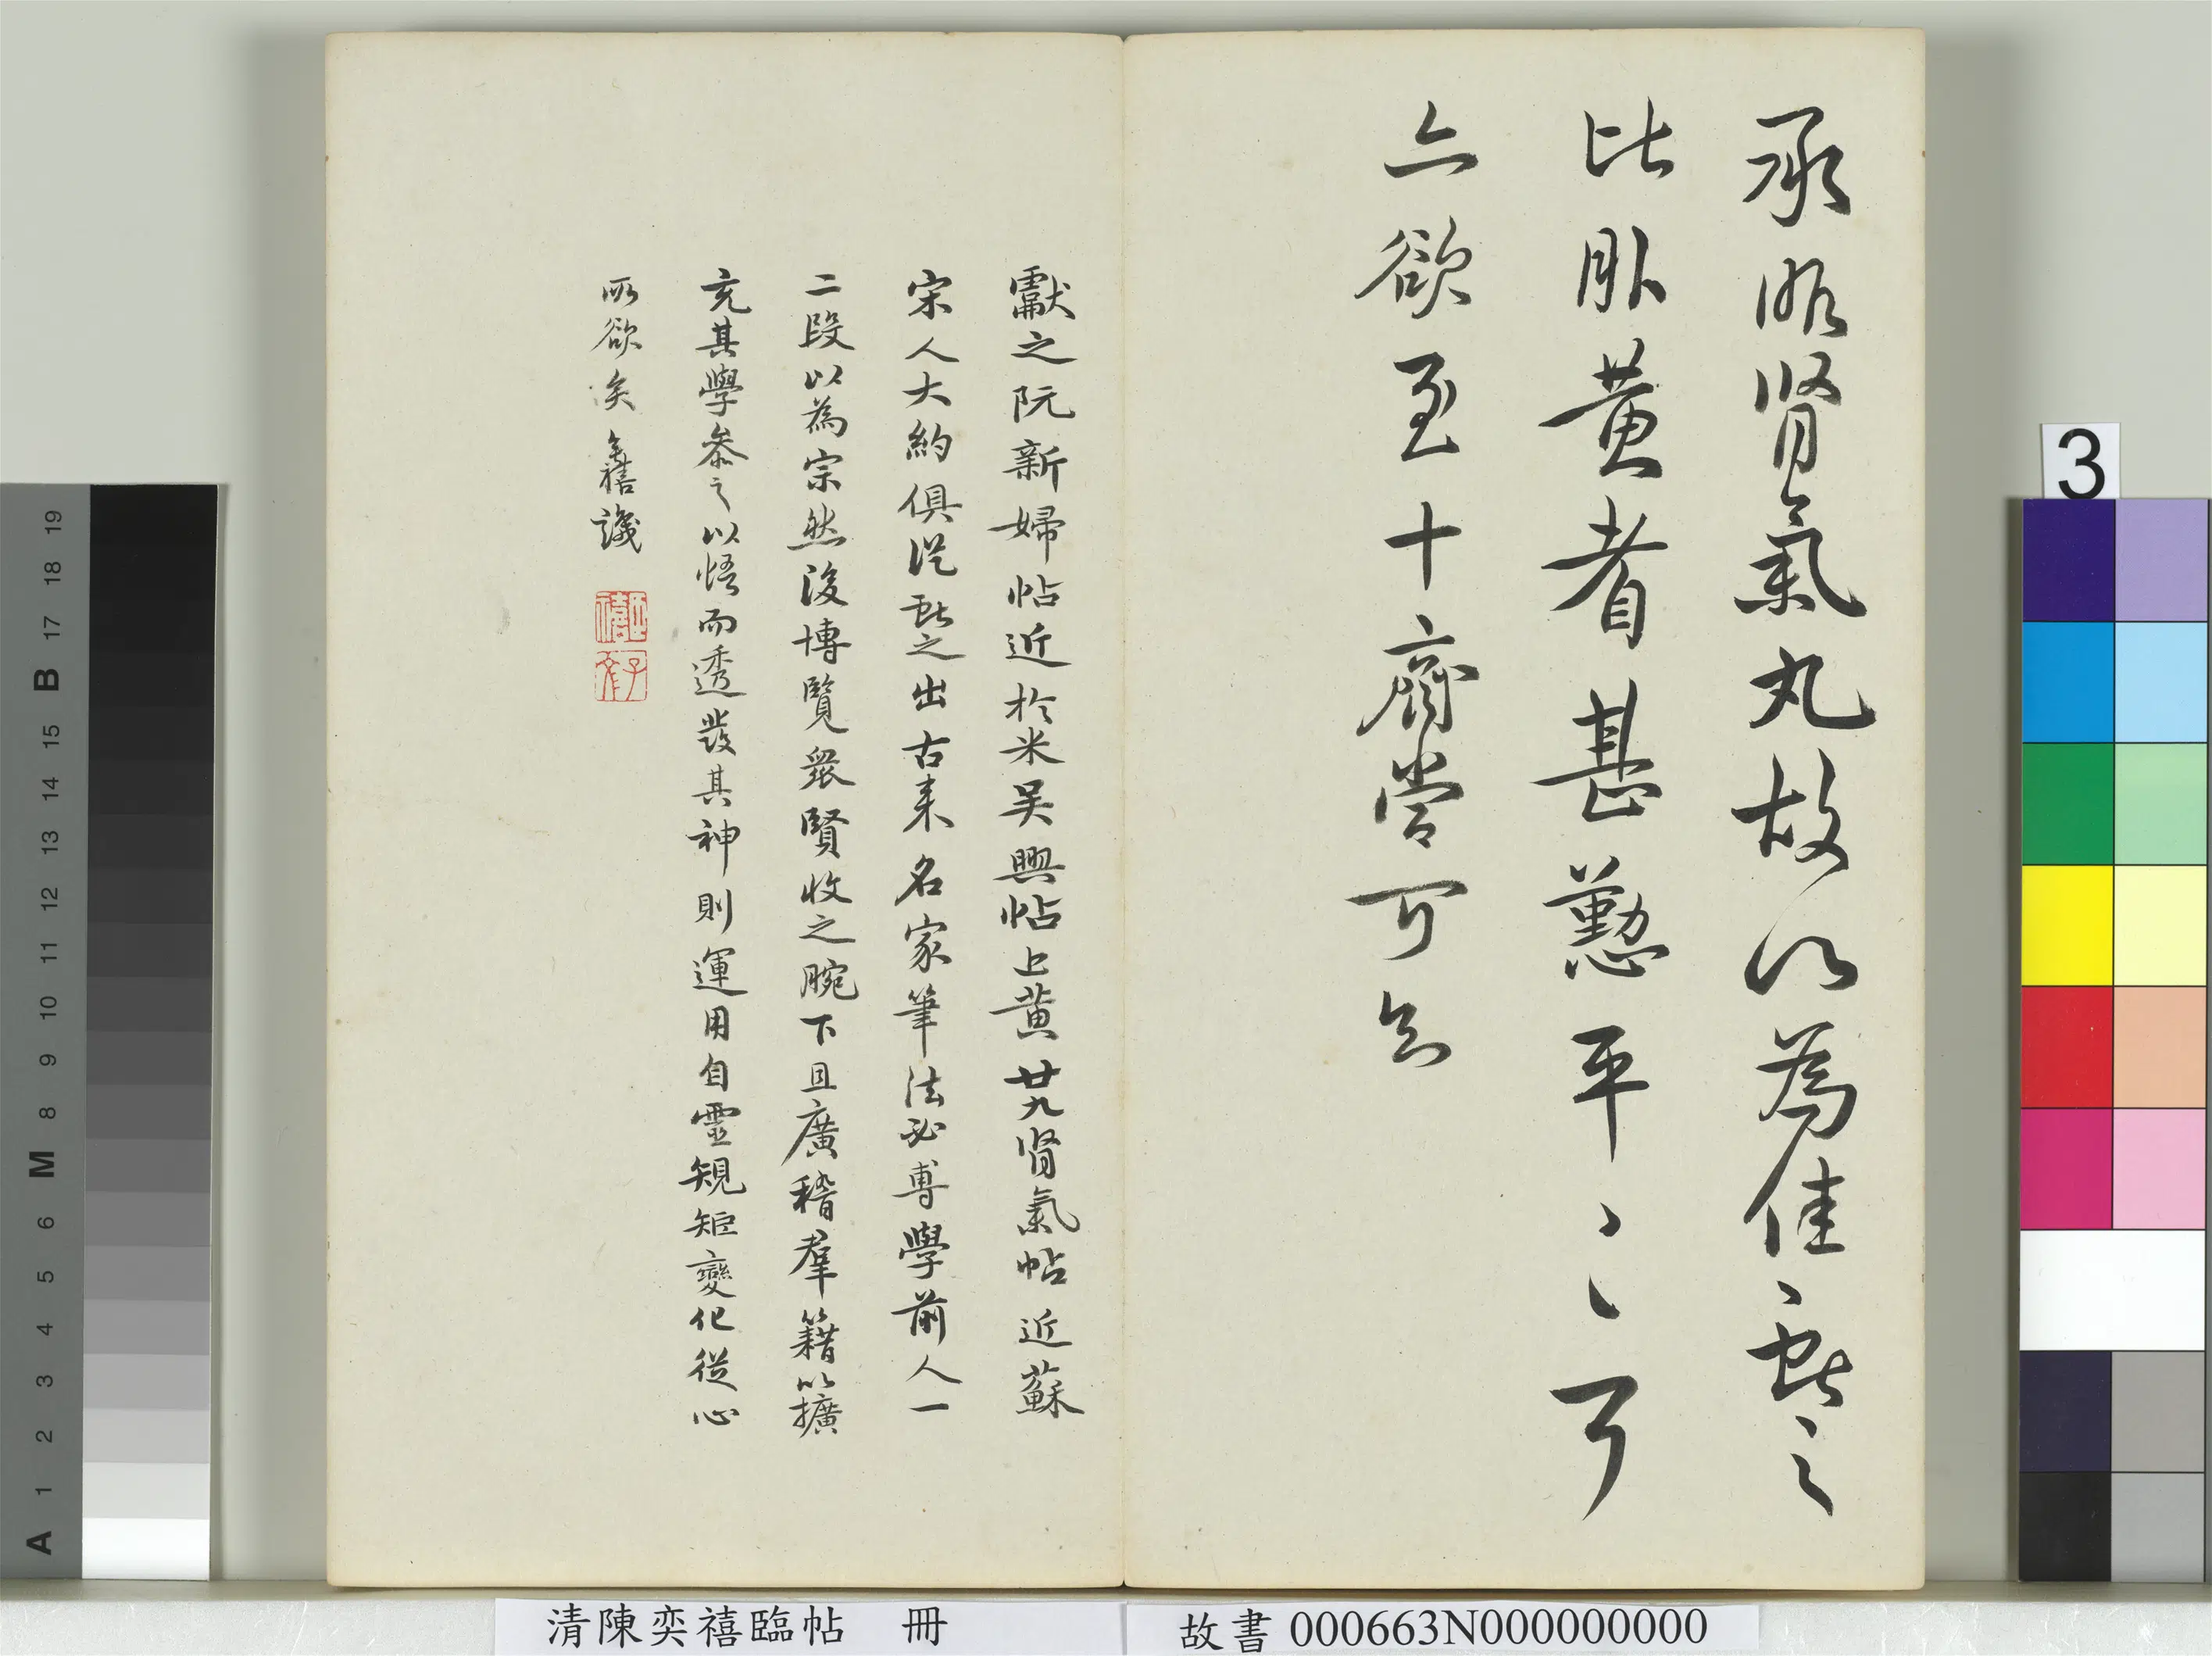 承服腎氣丸故以為佳獻之
比服黃耆甚懃平〻耳
亦欲至十齊當可知
獻之阮新婦帖近於米吳興帖上黃廿九腎氣帖近蘇
宋人大約俱從獻之出古來名家筆法必專學前人一
二段以為宗然後博覽眾賢收之腕下且廣稽羣籍以擴
充其學參之以悟而透發其神則運用自靈規矩變化從心
所欲矣 奕禧識
子文
清陳奕禧臨帖 冊
故書 000663N000000000
3
19
18
17
B
16
15
14
13
12
11
10
9
8
M
6
5
4
3
2
1
A